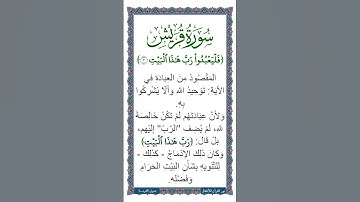 سُورَةُ قُرَيْشٍ
﴿فَلْيَعْبُدُوا۟ رَبَّ هَٰذَا ٱلْبَيْتِ ۝٣﴾
المَقْصُودُ مِنَ العِبَادَةِ فِي
الآيَةِ: تَوْحِيدُ اللهِ وَأَلَّا يُشْرِكُوا
بِهِ.
وَلِأَنَّ عِبَادَتَهُم لَمْ تَكُنْ خَالِصَةً
لله، لَمْ يُضِفْ "الرَّبَّ" إِلَيْهِم،
بَلْ قَالَ: ﴿رَبَّ هَٰذَا ٱلْبَيْتِ﴾
وَكَانَ ذَلِكَ الِانْدِمَاجُ - كَذَلِكَ -
لِلتَّنْوِيهِ بِشَأْنِ البَيْتِ الحَرَامِ
وَفَضْلِهِ.